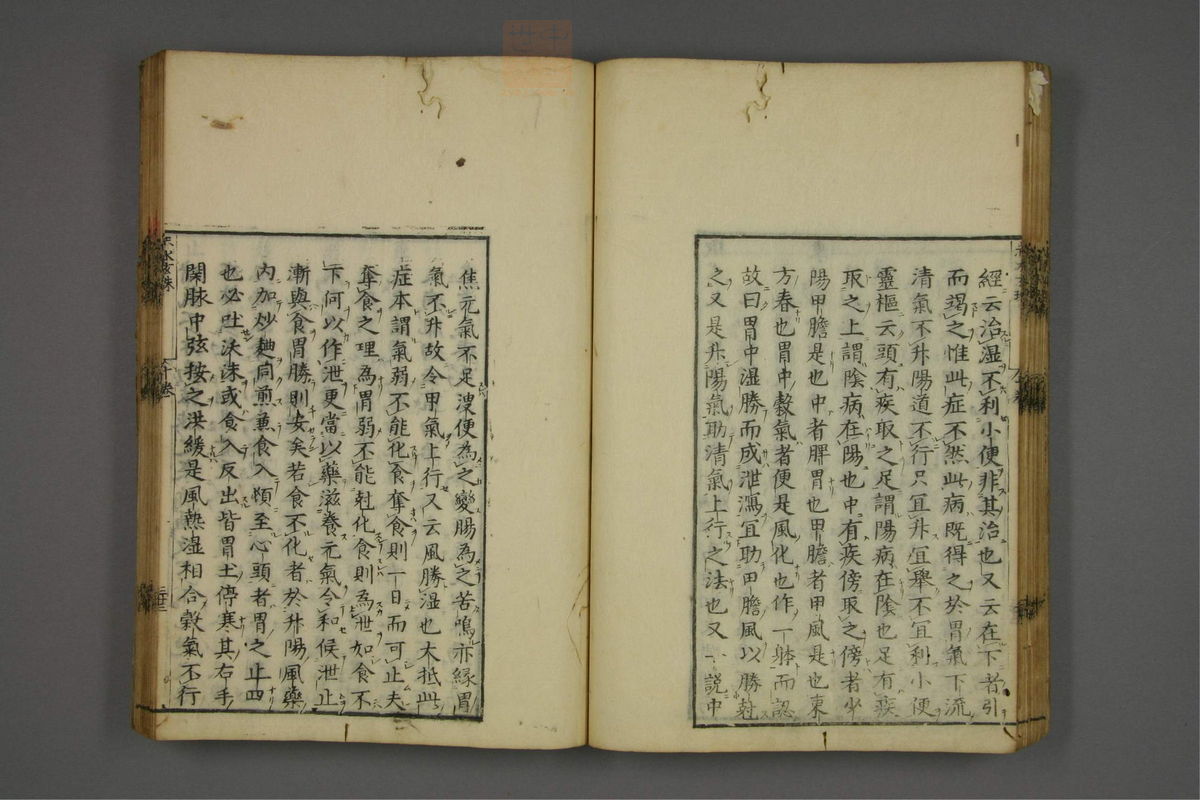 經云治湿不利小便非其治也又云在下者引
而竭之惟此症不然此病既得之於胃氣下流
清氣不升陽道不行只宜升宜舉不宜利小便
靈樞云頭有疾取之足謂陽病在陰也足有疾
取之上謂陰病在陽也中有疾傍取之傍者少
陽甲膽是也中者脾胃也甲膽者甲風是也東
方春也胃中穀氣者便是風化也作一躰而認
故曰胃中湿勝而成泄瀉宜助甲膽風以勝尅
之又是升陽氣助清氣上行之法也又一説中
焦元氣不足溲便為之變腸為之苦鳴亦緣胃
氣不升故令甲氣上行又云風勝湿也大抵此
症本謂氣弱不能化食奪食則一日而可止夫
奪食之理為胃弱不能尅化食則為泄如食不
下何以作泄更當以藥滋養元氣令和候泄止
漸與食胃勝則安矣若食不化者於升陽風藥
内加炒麯同煎兼食入頓至心頭者胃之上口
也必吐沃沫或食入反出皆胃土停寒其右手
関脉中弦按之洪緩是風熱湿相合穀氣不行